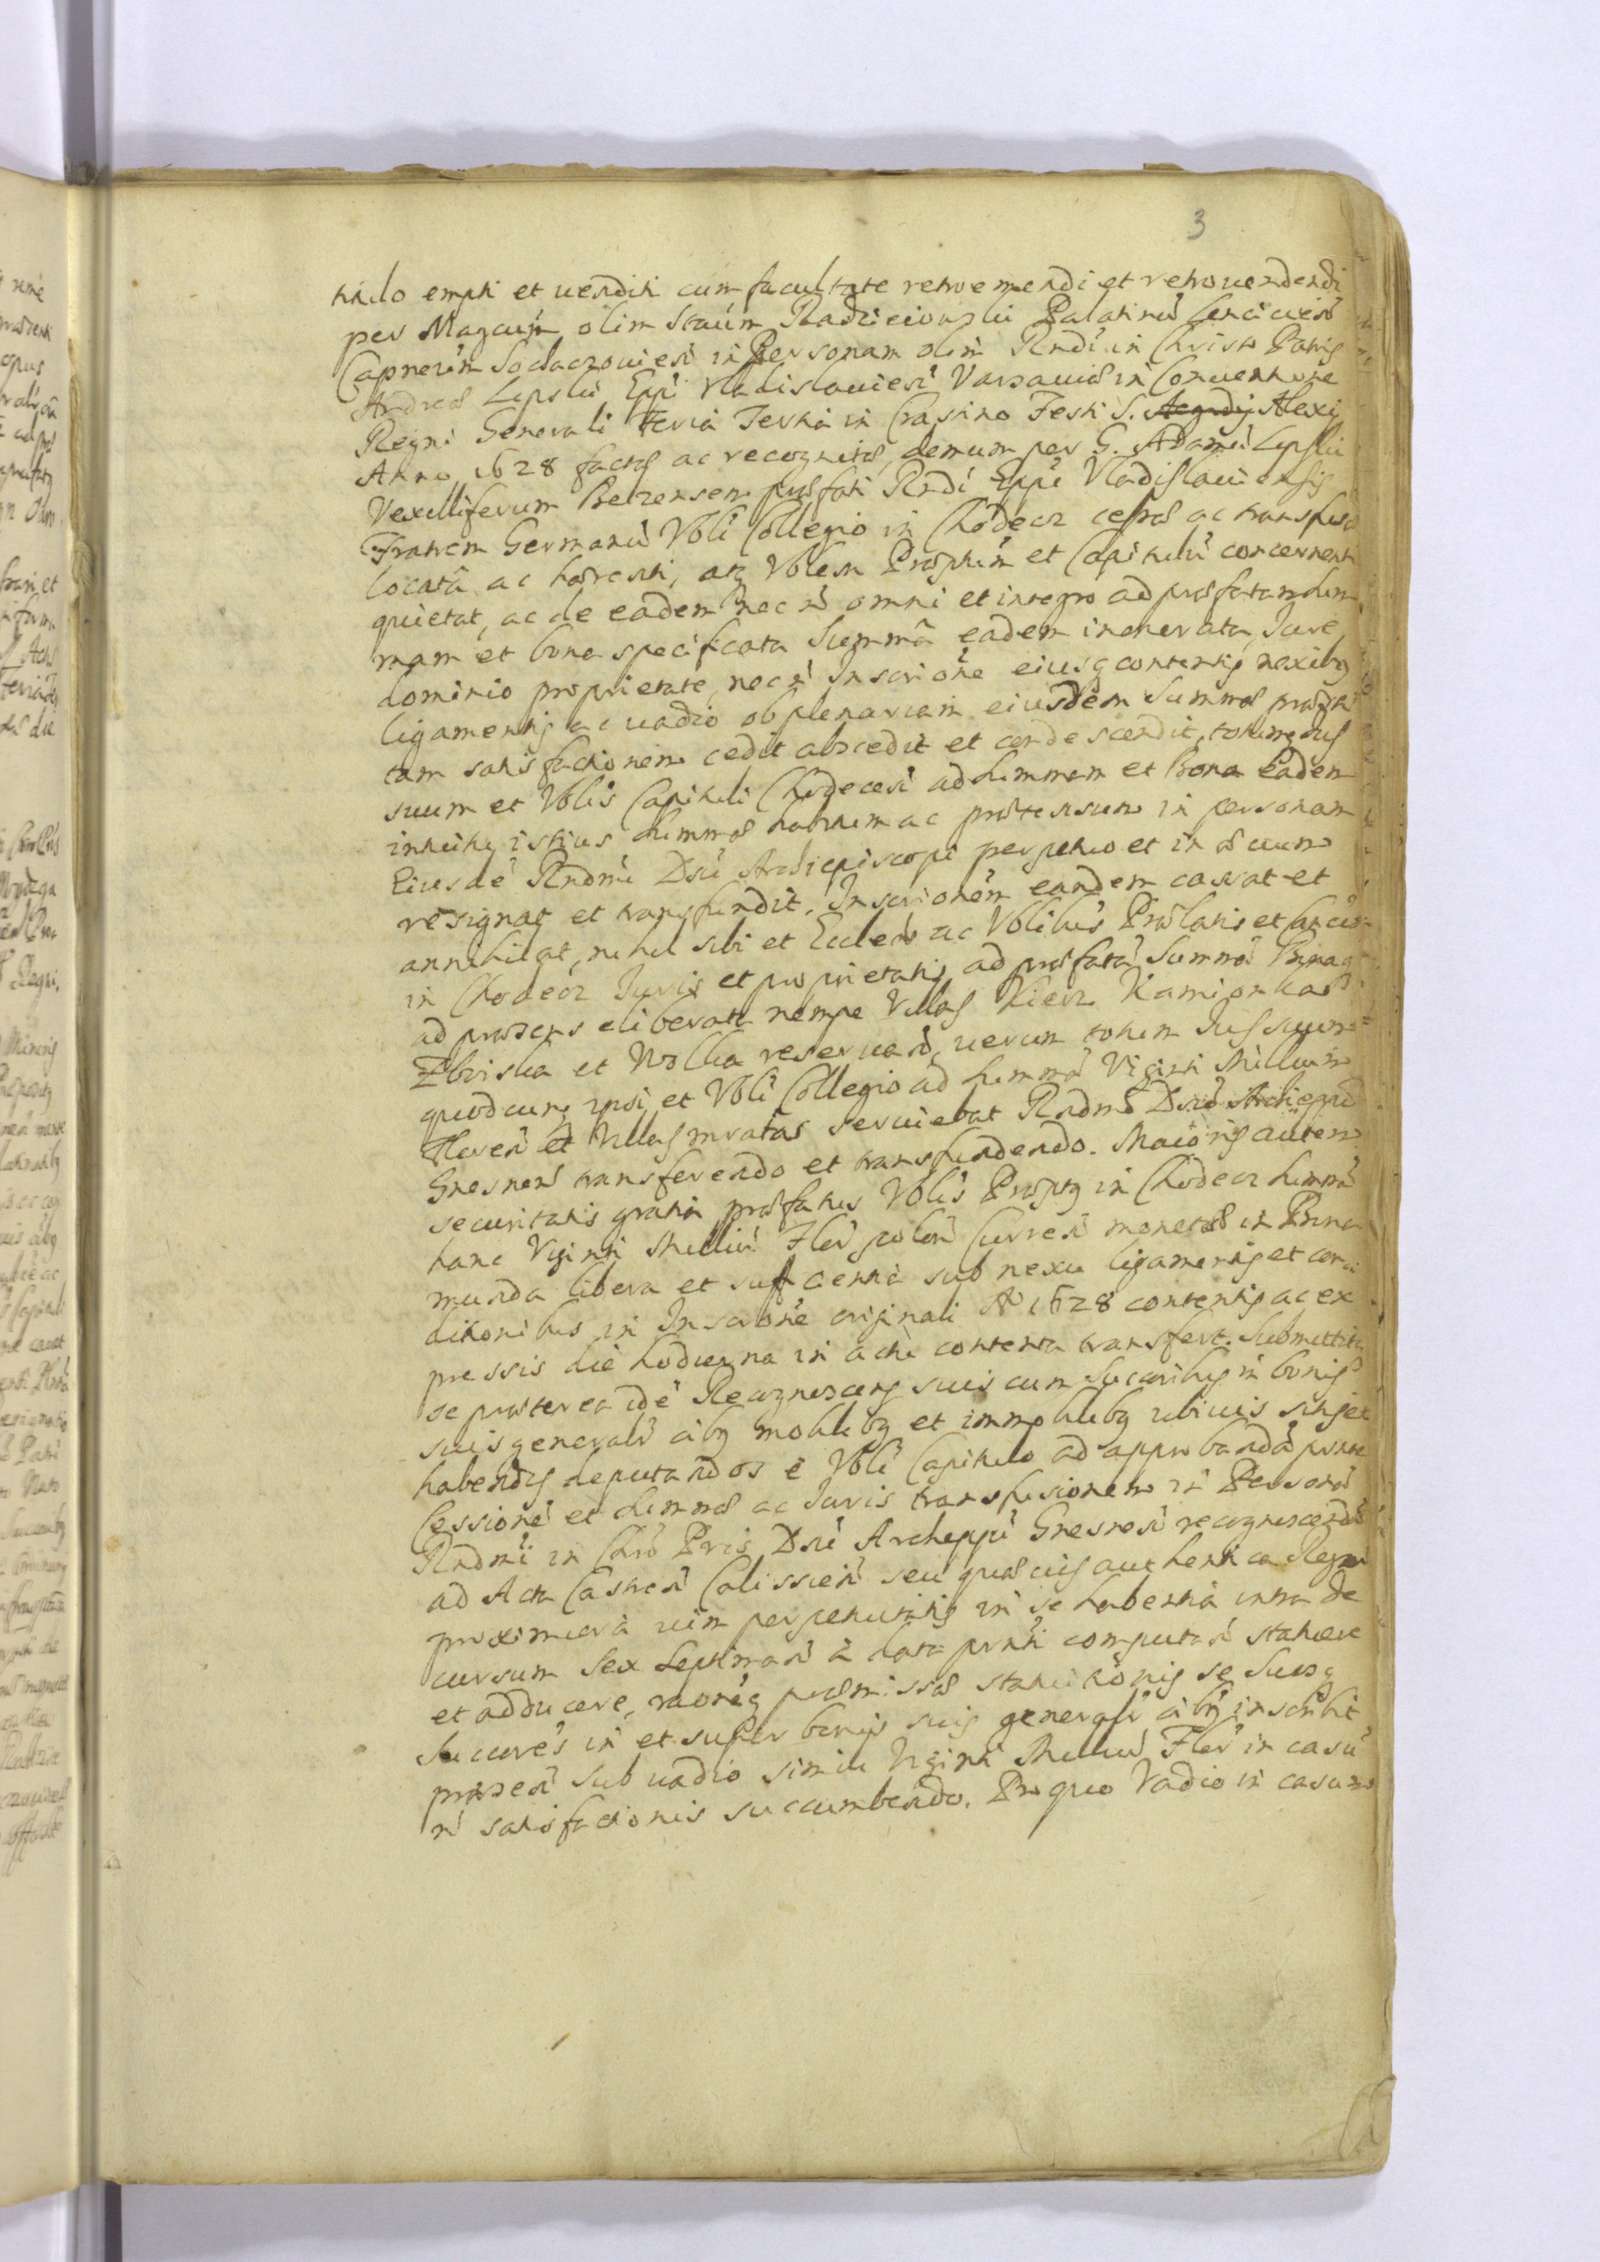 3
titulo empti et venditi cum facultate retroemendi et retrovendendi
per Magcum olim Staum Radzieiowski Palatinum Lenciciesem
Capneum Sochaczouiesem in Personam olim Rndi in Christo Patris
Andreæ Lipski Eppi Vladislauiesis Varsauiæ in Conuentione
Regni Generali Feria Tertia in Crastino Festi S. Alexij
Anno 1628 factæ ac recognitæ, demum per G. Adamum Lipski
Vexilliferum Belzensem præfati Rndi Eppi Vladislauiensis
Fratrem Germanum Vbli Collegio in Chodecz cessæ ac transfusæ
locatam ac hærenti, atq Vblem Præptum et Capitulum concernenti
quietat, ac de eadem nec non omni et integro ad præfatam Sum
mam et bona specificata Summa eadem inonerata, Jure
dominio proprietate, nec non Inscrione eiusq contentis nexibus
ligamentis ac vadio ob plenariam eiusdem Summæ præsti
tam satisfactionem cedit abscedit et condescendit, totumq Jus
suum et Vblis Capituli Chodecesis ad Summam et Bona eadem
intuitu istius Summæ habitum ac prætensum in personam
Eiusdem Rndmi Dni Archiepiscopi perpetuo et in æuum
resignat et transfundit. Inscrionem eandem cassat et
annihilat, nihil sibi et Ecclesiæ ac Vblibus Prælatis et Cancis
in Chodecz Juris et proprietatis ad præfatam Summam Bonaq
ad præsens eliberata nempe Villas Kierz Kamionka
Zbriska et Wolka reseruando, verum totum Jus suum
quodcunq ipsi et Vbli Collegio ad Summam Viginti Millium
Floren et Villas mratas seruiebat Rndmo Dno Archieppo
Gnesnen transferendo et transfundendo. Maioris autem
securitatis gratia præfatus Vblis Præptus in Chodecz Summam
hanc Viginti Millium Flor polon Curren monetæ in Bona
munda libera et sufficientia sub nexu ligamentis et con
ditionibus in Inscrione originali Ao 1628 contentis ac ex
pressis die hodierna in acti contenta transfert. Submittit
se præterea idem Recognoscens suis cum Succoribus in bonis
suis generalr oibus mobilibus et immobilibus ubiuis sitis et
habendis deputandos e Vbli Capitulo ad approbandam pntem
Cessionem et Summæ ac Juris transfusionem in Personam
Rndmi in Chro Pris Dni Archieppi Gnesnesis recognoscendam
ad Acta Castresia Calissiesia seu quæuis authentica Regni
proximiora vim perpetuitatis in se habentia intra de
cursum sex Septimanarum a data pnti computando statuere
et adducere, raoneq præmissæ statuitionis se Suosq
Succores in et super bonis suis generalr oibus inscribit
præsen sub vadio simili Viginti Millium Flor in casu
non satisfactionis succumbendo. Pro quo Vadio in casum